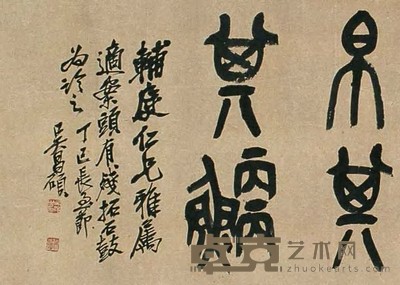 帛其
其
輔庭仁兄雅屬
適案頭有殘拓石鼓
為臨之 丁巳長至節
吳昌碩
卓克艺术网
zhuokearts.com